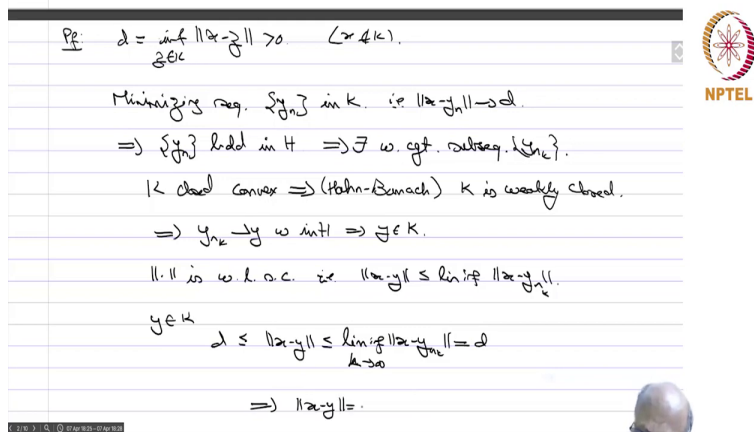 Pf: d = inf ||x-z|| > 0. (x ∉ K).
z∈K
Minimizing seq. {y_n} in K. i.e ||x-y_n|| → d.
⇒ {y_n} bdd in H ⇒ ∃ w. cgt. subseq. {y_{n_k}}.
K closed convex ⇒ (Hahn-Banach) K is weakly closed.
⇒ y_{n_k} ⇀ y w in H ⇒ y ∈ K.
||.|| is w.l.s.c. i.e. ||x-y|| ≤ liminf ||x-y_{n_k}||.
y ∈ K
d ≤ ||x-y|| ≤ liminf ||x-y_{n_k}|| = d
k→∞
⇒ ||x-y|| =
NPTEL
2/10
07 Apr 18:25 - 07 Apr 18:28